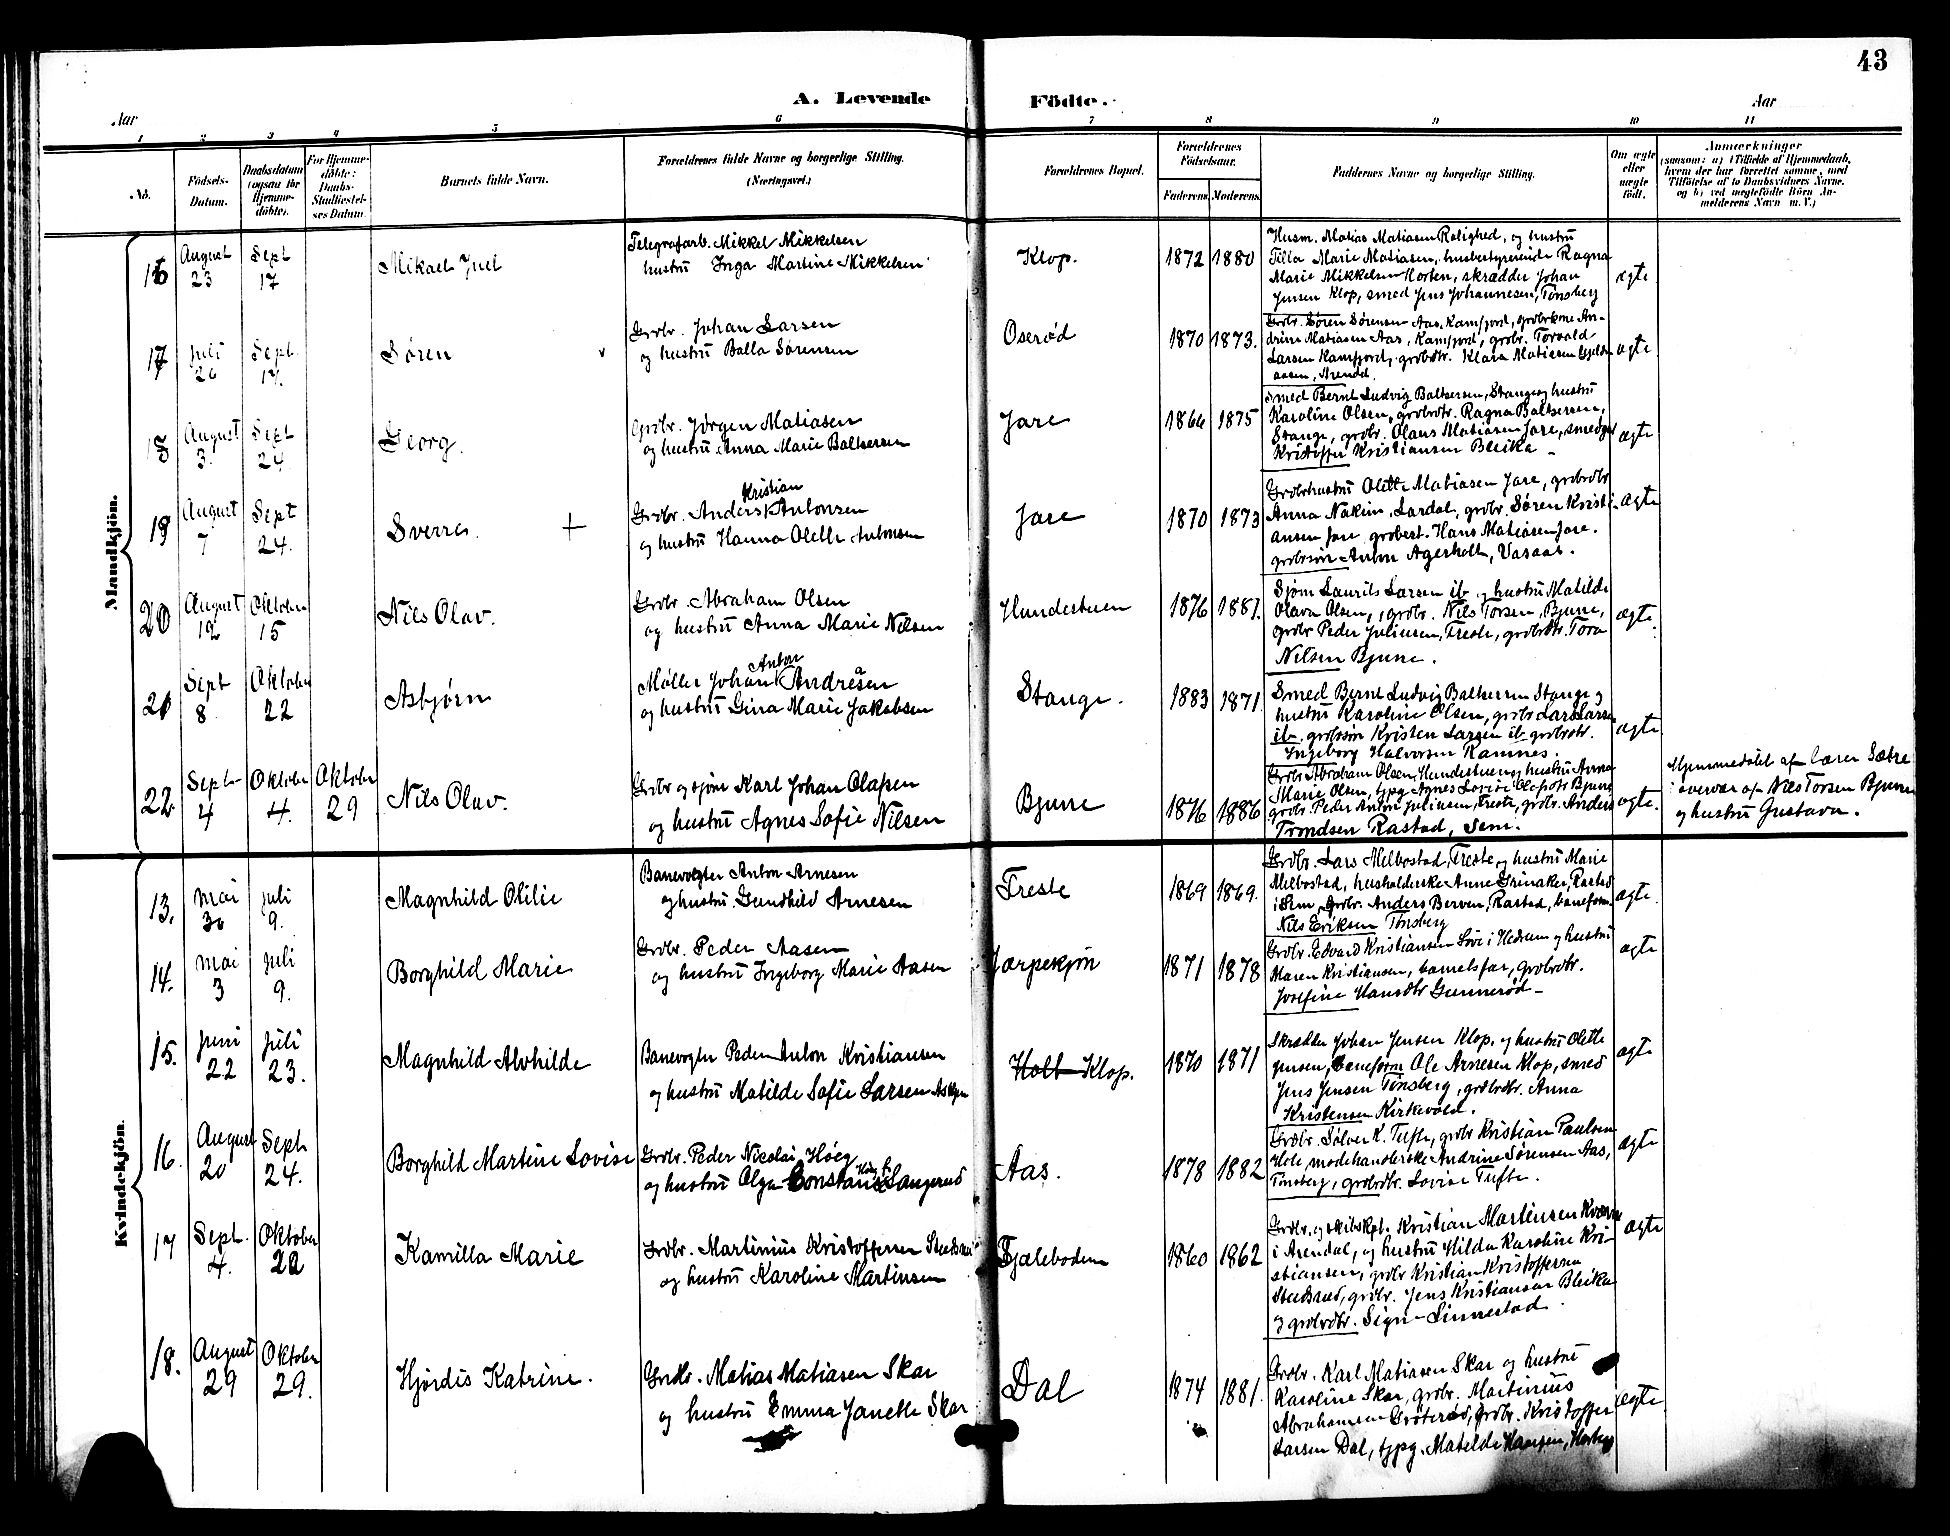 43
A. Levende Födte.
Aar
Aar
1 2 3 4 5 6 7 8 9 10 11
No.
Födsels-
Datum.
Daabsdatum
(ogsaa for
Hjemme-
döbte).
For Hjemme-
döbte:
Daabs-
Stadfæstel-
ses Datum.
Barnets fulde Navn.
Forældrenes fulde Navne og borgerlige Stilling.
(Næringsvei.)
Forældrenes Bopæl.
Forældrenes
Födselsaar.
Faderens. Moderens.
Faddernes Navne og borgerlige Stilling.
Om ægte
eller
uægte
født.
Anmærkninger
(saasom: a) i Tilfælde af Hjemmedaab,
hvem der har forrettet samme, med
Tilföielse af to Daabsvidners Navne,
og b) ved uægtefödte Börn An-
melderens Navn m. V.)
Mandkjön.
16
August
23
Sept
17
Mikael Juel
Telegrafarb. Mikkel Mikkelsen
hustru Inga Martine Mikkelsen
Klop.
1872 1880
Husm. Matias Matiasen Rolighed, og hustru
Tilla Marie Matiasen, husbestyrerinde Ragna
Marie Mikkelsen Horten, skrædder Johan
Jensen Klop, smed Jens Johannesen, Tønsberg
ægte
17
Juli
20
Sept.
17.
Søren
Grdbr. Johan Larsen
og hustru Balla Sørensen
Oserød
1870 1873.
Grdbr. Søren Sørensen Aas, Ramfjord, grdbrkone An-
drine Matiasen Aas, Ramfjord, grdbr. Torvald
Larsen Ramfjord, grdbrdtr. Klara Matiasen
ægte
18
August
3.
Sept
24
Georg.
Grdbr. Jørgen Matiasen
og hustru Anna Marie Baltsersen
Jare
1866 1875
Smed Bernt Ludvig Baltsersen, Stange og hustru
Karoline Olsen, grdbrdtr. Ragna Baltsersen,
Stange, grdbr. Olaus Matiasen Jare, smed
Kristoffer Kristiansen Bleika
ægte
19
August
7
Sept
24.
Sverre.
+
Kristian
Grdbr. Anders Antonsen
og hustru Hanna Olette Antonsen
Jare
1870 1873
Grdbrhustru Olette Matiasen Jare, grdbrdtr
Anna Nakim, Lardal, grdbr. Søren Kristi-
ansen Jare grdbrst. Hans Matiasen Jare.
grdbrsøn Anton Agerholt, Vasaas.
ægte
20
August
12
Oktober
15
Nils Olav.
Grdbr. Abraham Olsen
og hustru Anna Marie Nilsen
Hundestuen
1876 1881.
Sjøm Laurits Larsen ib. og hustru Matilde
Olava Olsen, grdbr. Nils Torsen, Bjune,
grdbr Peder Juliusen, Freste, grdbrdtr. Tora
Nilsen Bjune.
ægte
21
Sept
8
Oktober
22
Asbjørn
Anton
Møller Johan Andresen
og hustru Gina Marie Jakobsen
Stange.
1883 1871
Smed Bernt Ludvig Baltsersen Stange og
hustru Karoline Olsen, grdbr Lars Larsen
ib. grdbrsøn Kristen Larsen ib grdbrdtr.
Ingeborg Halvorsen Ramnes.
ægte
22
Sept
4
Oktober
4.
Oktober
29
Nils Olav.
Grdbr og sjøm Karl Johan Olafsen
og hustru Agnes Sofie Nilsen
Bjune
1876 1886
Grdbr Abraham Olsen, Hundestuen og hustru Anna
Marie Olsen, tjpg Agnes Lovise Olafsdtr Bjune
grdbr. Peder Anton Juliusen, Freste, grdbr. Anders
Trondsen Rastad, Sem.
ægte.
Hjemmedøbt af lærer Sætre
i overvær af Nils Torsen Bjune
og hustru Gustava.
Kvindekjön.
13.
Mai
30
Juli
9.
Magnhild Otilie
Banevogter Anton Arnesen
og hustru Gundhild Arnesen
Freste
1869 1869.
Grdbr. Lars Melbostad, Freste og hustru Marie
Melbostad, husholderske Anne Grinaker, Rastad
i Sem, grdbr. Anders Berven, Rastad, baneform.
Nils Eriksen Tønsberg
ægte.
14.
Mai
3
Juli
9.
Borghild Marie
Grdbr. Peder Aasen
og hustru Ingeborg Marie Aasen
Jarpekjøn
1871 1878
Grdbr. Edvard Kristiansen Løve i Hedrum og hustru
Maren Kristiansen, barnefar, grdbrdtr.
Josefine Hansdtr Gunnerød
ægte
15.
Juni
22
Juli
23.
Magnhild Alvhilde
Banevogter Peder Anton Kristiansen
og hustru Matilde Sofie Larsen
Holt Klop.
1870 1871
Skrædder Johan Jensen Klop, og hustru Olette
Jensen, baneform Ole Arnesen Klop, smed
Jens Jensen Tønsberg, grdbrdtr. Anna
Kristensen Kirkevold.
ægte
16.
August
20
Sept
24.
Borghild Martine Lovise
Grdbr. Peder Nicolai Høeg
og hustru Olga Constanse Langerud
Aas.
1878 1882
Grdbr. Sølver K. Tufte, grdbr Kristian Paulsen
Hole, modehandlerske Andrine Sørensen Aas,
Tønsberg, grdbrdtr. Lovise Tufte.
ægte
17
Sept.
4.
Oktober
22
Kamilla Marie
Grdbr. Martinius Kristoffersen Stedsrud
og hustru Karoline Martinsen
Fjæleboden
1860 1862
Grdbr. og skibskpt. Kristian Martinsen
i Arendal, og hustru Hilda Karoline Kri-
stiansen, grdbr Kristian Kristoffersen
Stedsrud, grdbr. Jens Kristiansen Bleika
og grdbrdtr. Signe Linnestad.
ægte
18.
August
29
Oktober
29.
Hjørdis Katrine.
Grdbr. Matias Matiasen Skar
og hustru Emma Janette Skar
Dal
1874 1881.
Grdbr. Karl Matiasen Skar og hustru
Karoline Skar, grdbr. Martinius
Abrahamsen Grøterød, grdbr. Kristoffer
Larsen Dal, tjpg. Matilde Hansen,
ægte